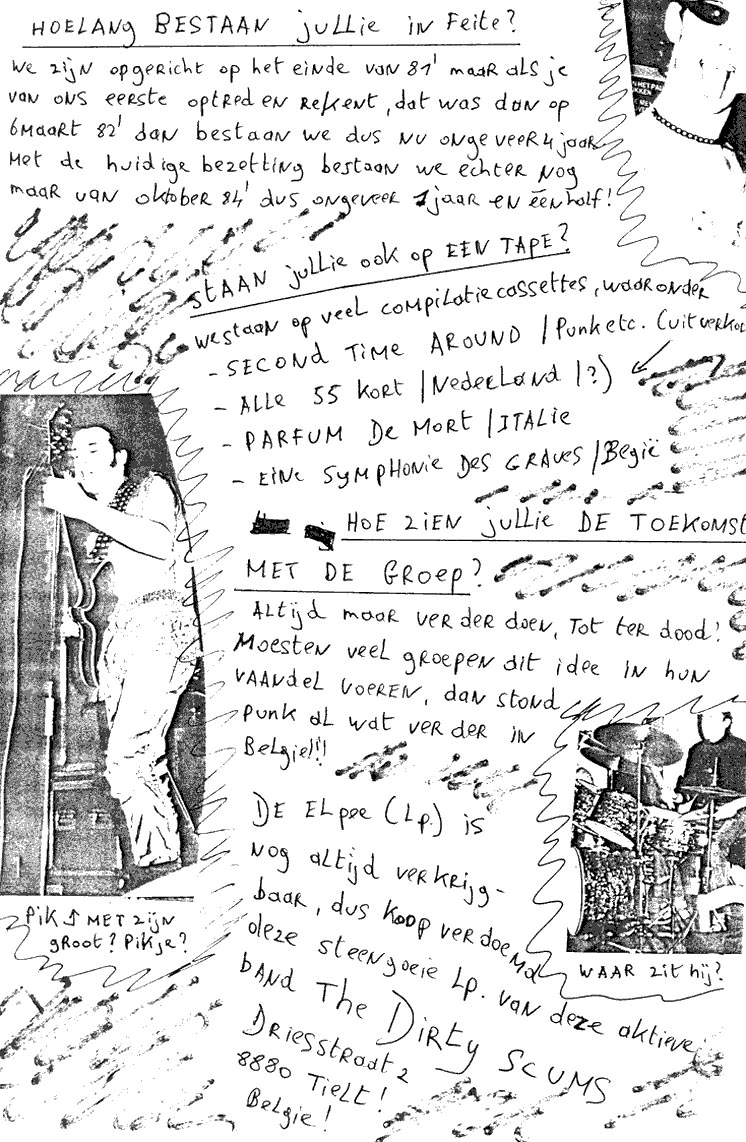 HOELANG BESTAAN jullie in Feite?
We zijn opgericht op het einde van 81' maar als je
van ons eerste optreden rekent, dat was dan op
6 Maart 82' dan bestaan we dus nu ongeveer 4 jaar.
Met de huidige bezetting bestaan we echter nog
maar van oktober 84' dus ongeveer 1 jaar en één half!
STAAN jullie ook op EEN TAPE?
we staan op veel compilatiecassettes, waaronder
- SECOND TIME AROUND / Punk etc. (uitverkoc
- ALLE 55 KORT / Nederland / ?)
- PARFUM De MORT / ITALIE
- EINE SYMPHONIE DES GRAUES / België
HOE ZIEN jullie DE TOEKOMST
MET DE GROEP?
Altijd maar verder doen, tot ter dood!
Moesten veel groepen dit idee in hun
vaandel voeren, dan stond
punk al wat verder in
Belgie!!!
DE ELpee (Lp.) is
nog altijd verkrijg-
baar, dus koop verdoemd
deze steengoeie Lp. van deze aktieve
band The Dirty Scums
Driesstraat 2
8880 Tielt!
Belgie!
Pik MET zijn
groot? Pikje?
WAAR zit hij?